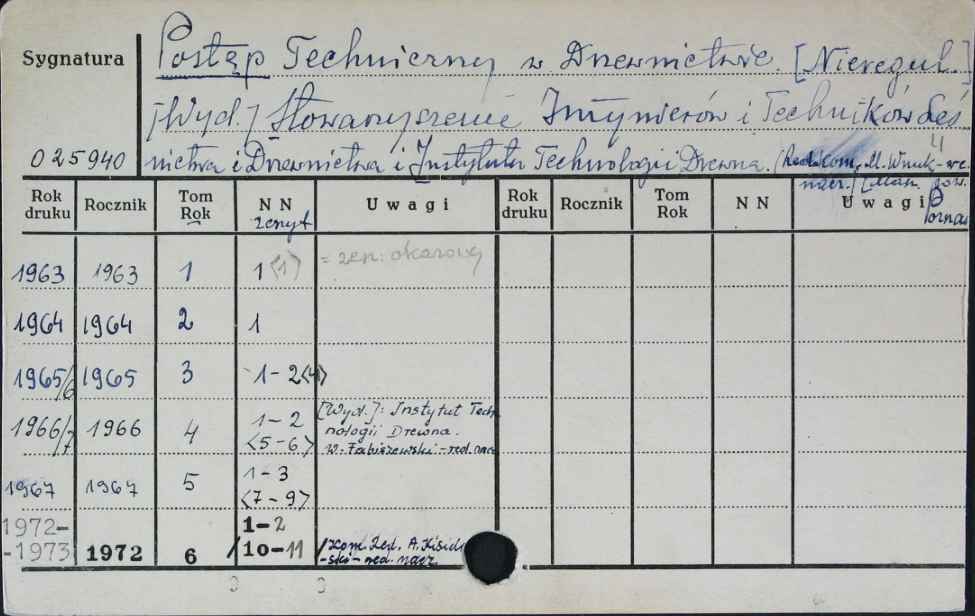 Sygnatura
Postęp Techniczny w Drzewnictwie. [Nieregul.]
[Wyd.] Stowarzyszenie Inżynierów i Techników Leś
025940 nictwa i Drzewnictwa i Instytutu Technologii Drewna. (Red. kom, M. Wnuk-
nacz.) [Masz. pow.
Poznań
Rok druku Rocznik Tom Rok N N zeszyt Uwagi Rok druku Rocznik Tom Rok N N Uwagi
1963 1963 1 1 <1> = zesz. okazowy
1964 1964 2 1
1965/6 1965 3 1-2 <4>
1966/7 1966 4 1-2 <5-6> [Wyd.]: Instytut Tech
nologii Drewna.
W. Fabiszewski-red. nacz
1967 1967 5 1-3 <7-9>
1972-
-1973 1972 6 1-2 /10-11 /Kom. Red. A. Kisid
-ski-red. nacz.